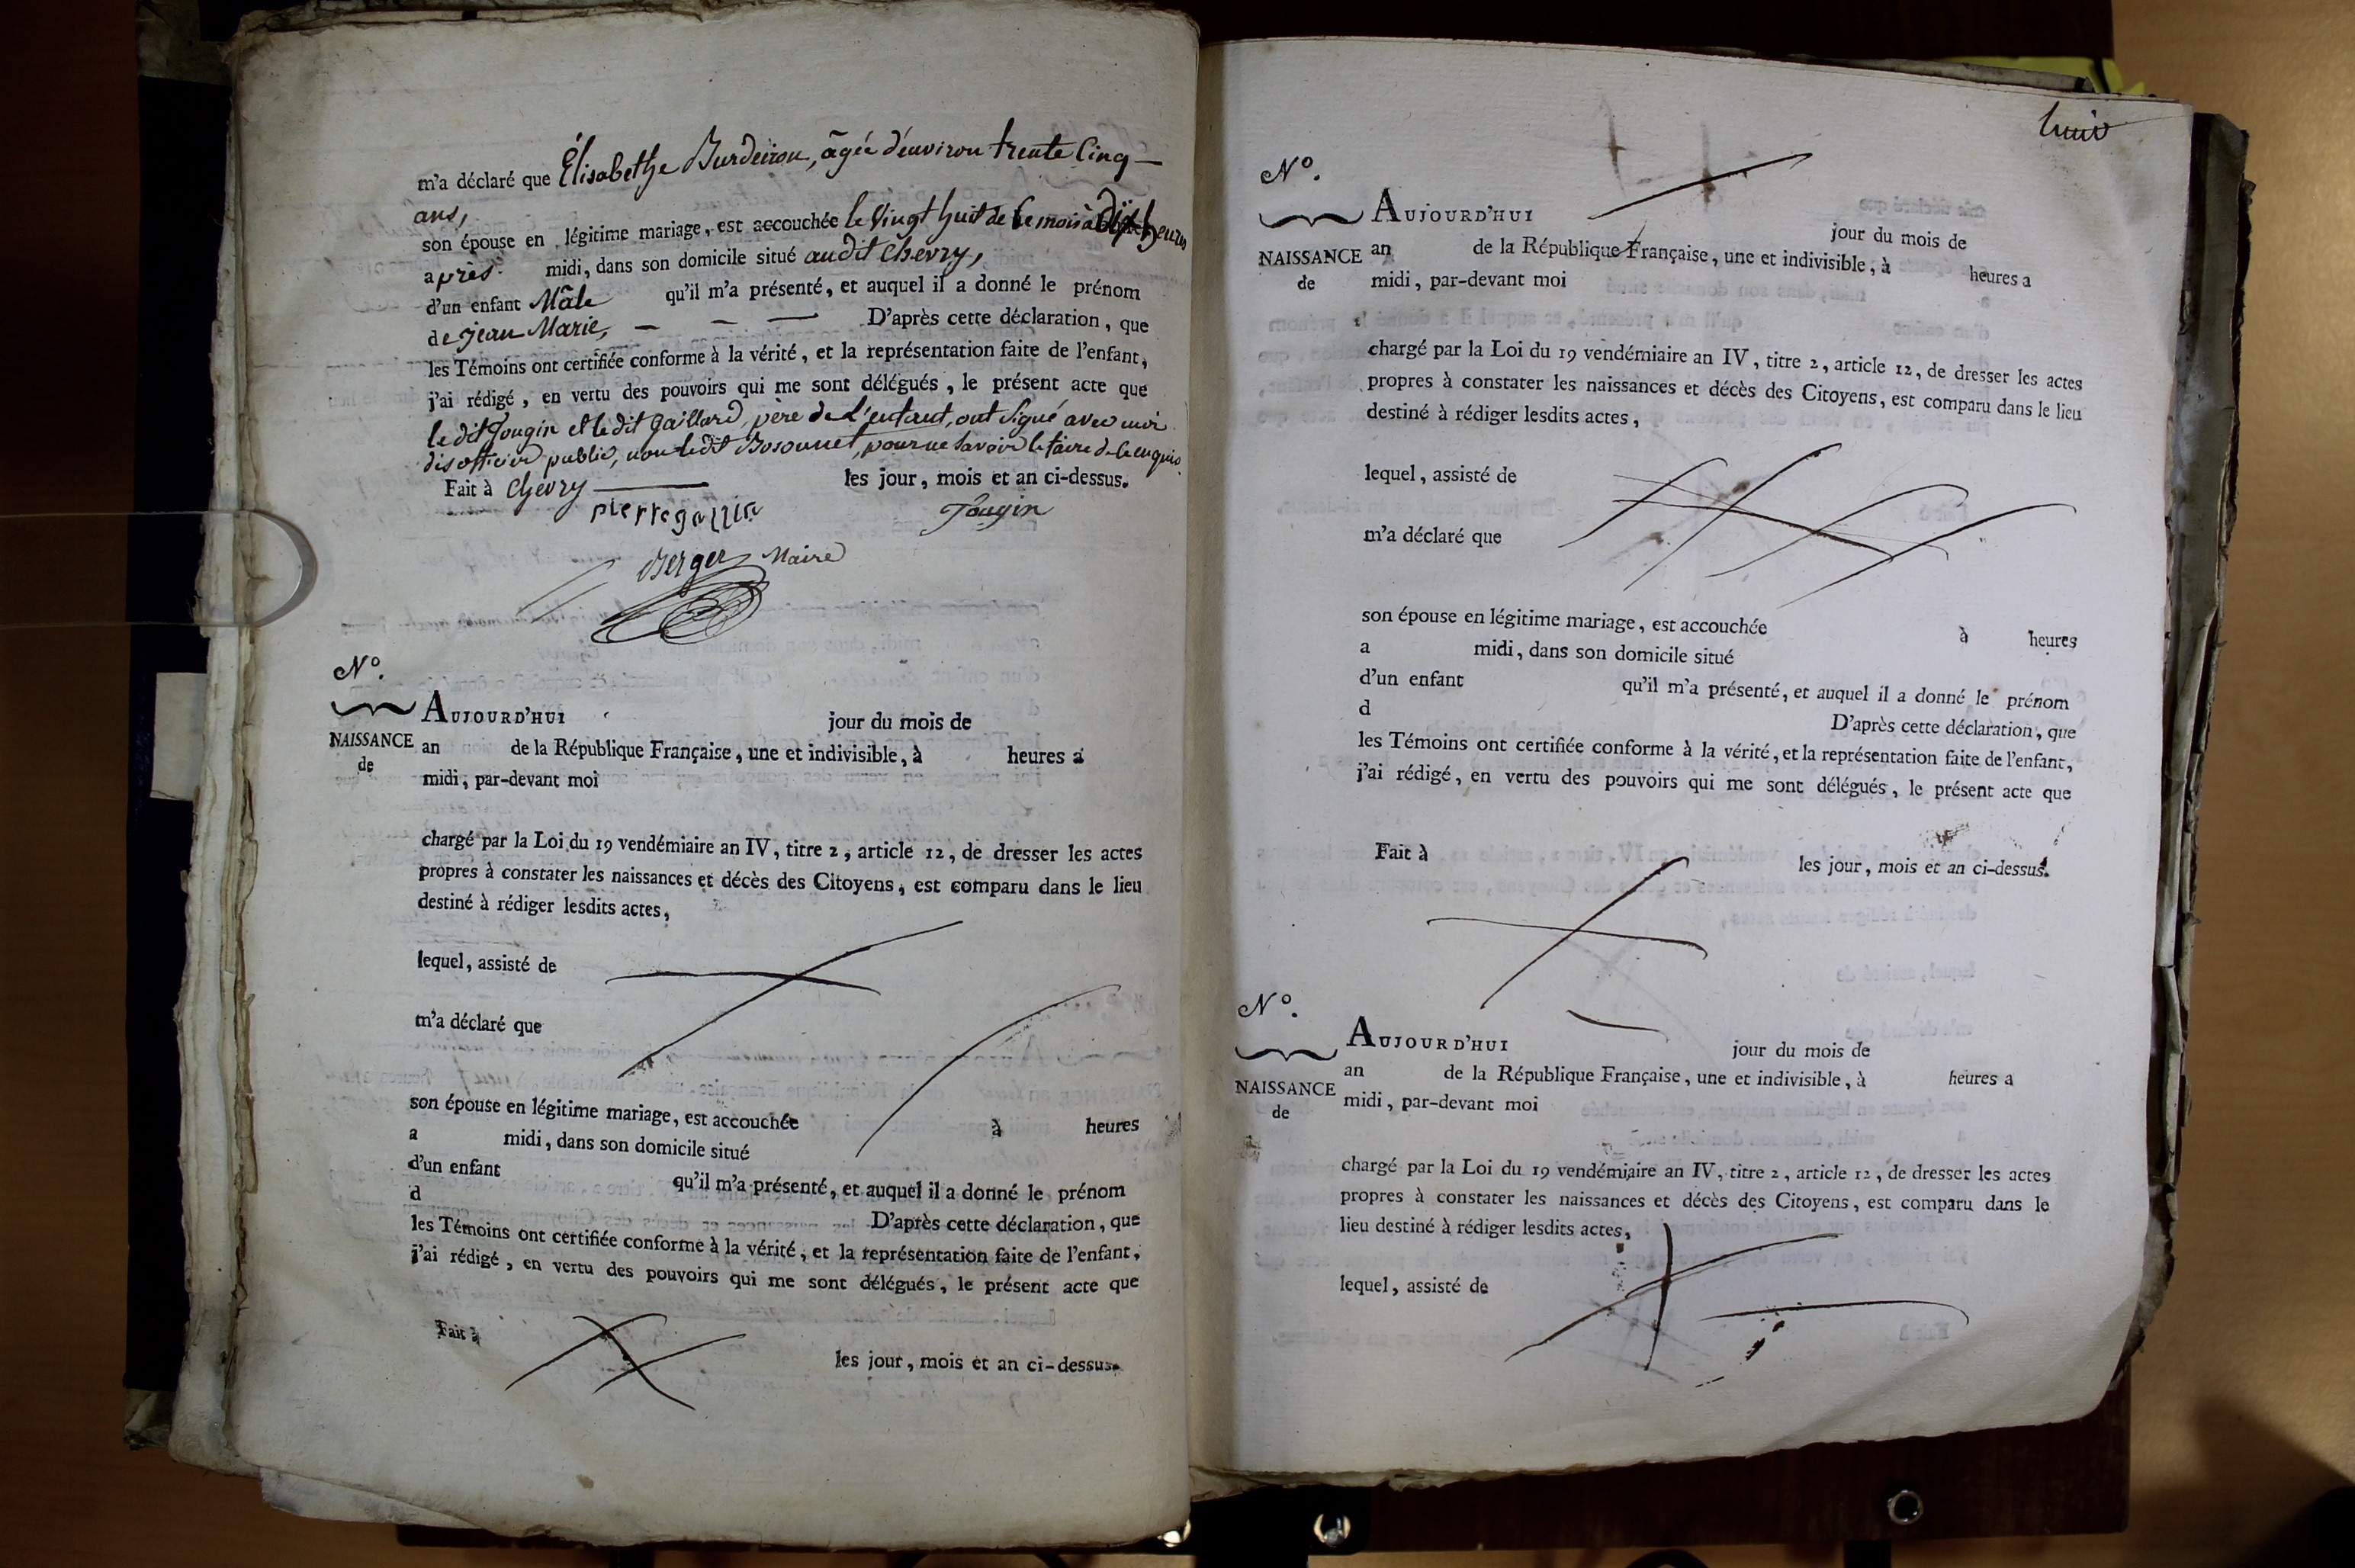 m'a déclaré que Élisabethe Burdeiron, âgée d'environ trente Cinq
ans,
son épouse en légitime mariage, est accouchée le Vingt huit de Ce mois à heures
après midi, dans son domicile situé audit Chevry,
d'un enfant Mâle qu'il m'a présenté, et auquel il a donné le prénom
de jean Marie, D'après cette déclaration, que
les Témoins ont certifiée conforme à la vérité, et la représentation faite de l'enfant,
j'ai rédigé, en vertu des pouvoirs qui me sont délégués, le présent acte que
le dit Gougin et le dit Gaillard, père de L'enfant, ont Signé avec moi
dis officier public, non le dit Bosonnet, pour ne Savoir le faire de ce enquis
Fait à Chevry les jour, mois et an ci-dessus.
pierre Gougin
Berger Maire
N°.
AUJOURD'HUI jour du mois de
NAISSANCE an de la République Française, une et indivisible, à heures a
de
midi, par-devant moi
chargé par la Loi du 19 vendémiaire an IV, titre 2, article 12, de dresser les actes
propres à constater les naissances et décès des Citoyens, est comparu dans le lieu
destiné à rédiger lesdits actes,
lequel, assisté de
m'a déclaré que
son épouse en légitime mariage, est accouchée à heures
a midi, dans son domicile situé
d'un enfant qu'il m'a présenté, et auquel il a donné le prénom
d D'après cette déclaration, que
les Témoins ont certifiée conforme à la vérité, et la représentation faite de l'enfant,
j'ai rédigé, en vertu des pouvoirs qui me sont délégués, le présent acte que
Fait à les jour, mois et an ci-dessus.
huit
N°.
AUJOURD'HUI jour du mois de
NAISSANCE an de la République Française, une et indivisible, à heures a
de midi, par-devant moi
chargé par la Loi du 19 vendémiaire an IV, titre 2, article 12, de dresser les actes
propres à constater les naissances et décès des Citoyens, est comparu dans le lieu
destiné à rédiger lesdits actes,
lequel, assisté de
m'a déclaré que
son épouse en légitime mariage, est accouchée à heures
a midi, dans son domicile situé
d'un enfant qu'il m'a présenté, et auquel il a donné le prénom
d D'après cette déclaration, que
les Témoins ont certifiée conforme à la vérité, et la représentation faite de l'enfant,
j'ai rédigé, en vertu des pouvoirs qui me sont délégués, le présent acte que
Fait à les jour, mois et an ci-dessus.
N°.
AUJOURD'HUI jour du mois de
an de la République Française, une et indivisible, à heures a
NAISSANCE midi, par-devant moi
de
chargé par la Loi du 19 vendémiaire an IV, titre 2, article 12, de dresser les actes
propres à constater les naissances et décès des Citoyens, est comparu dans le
lieu destiné à rédiger lesdits actes,
lequel, assisté de